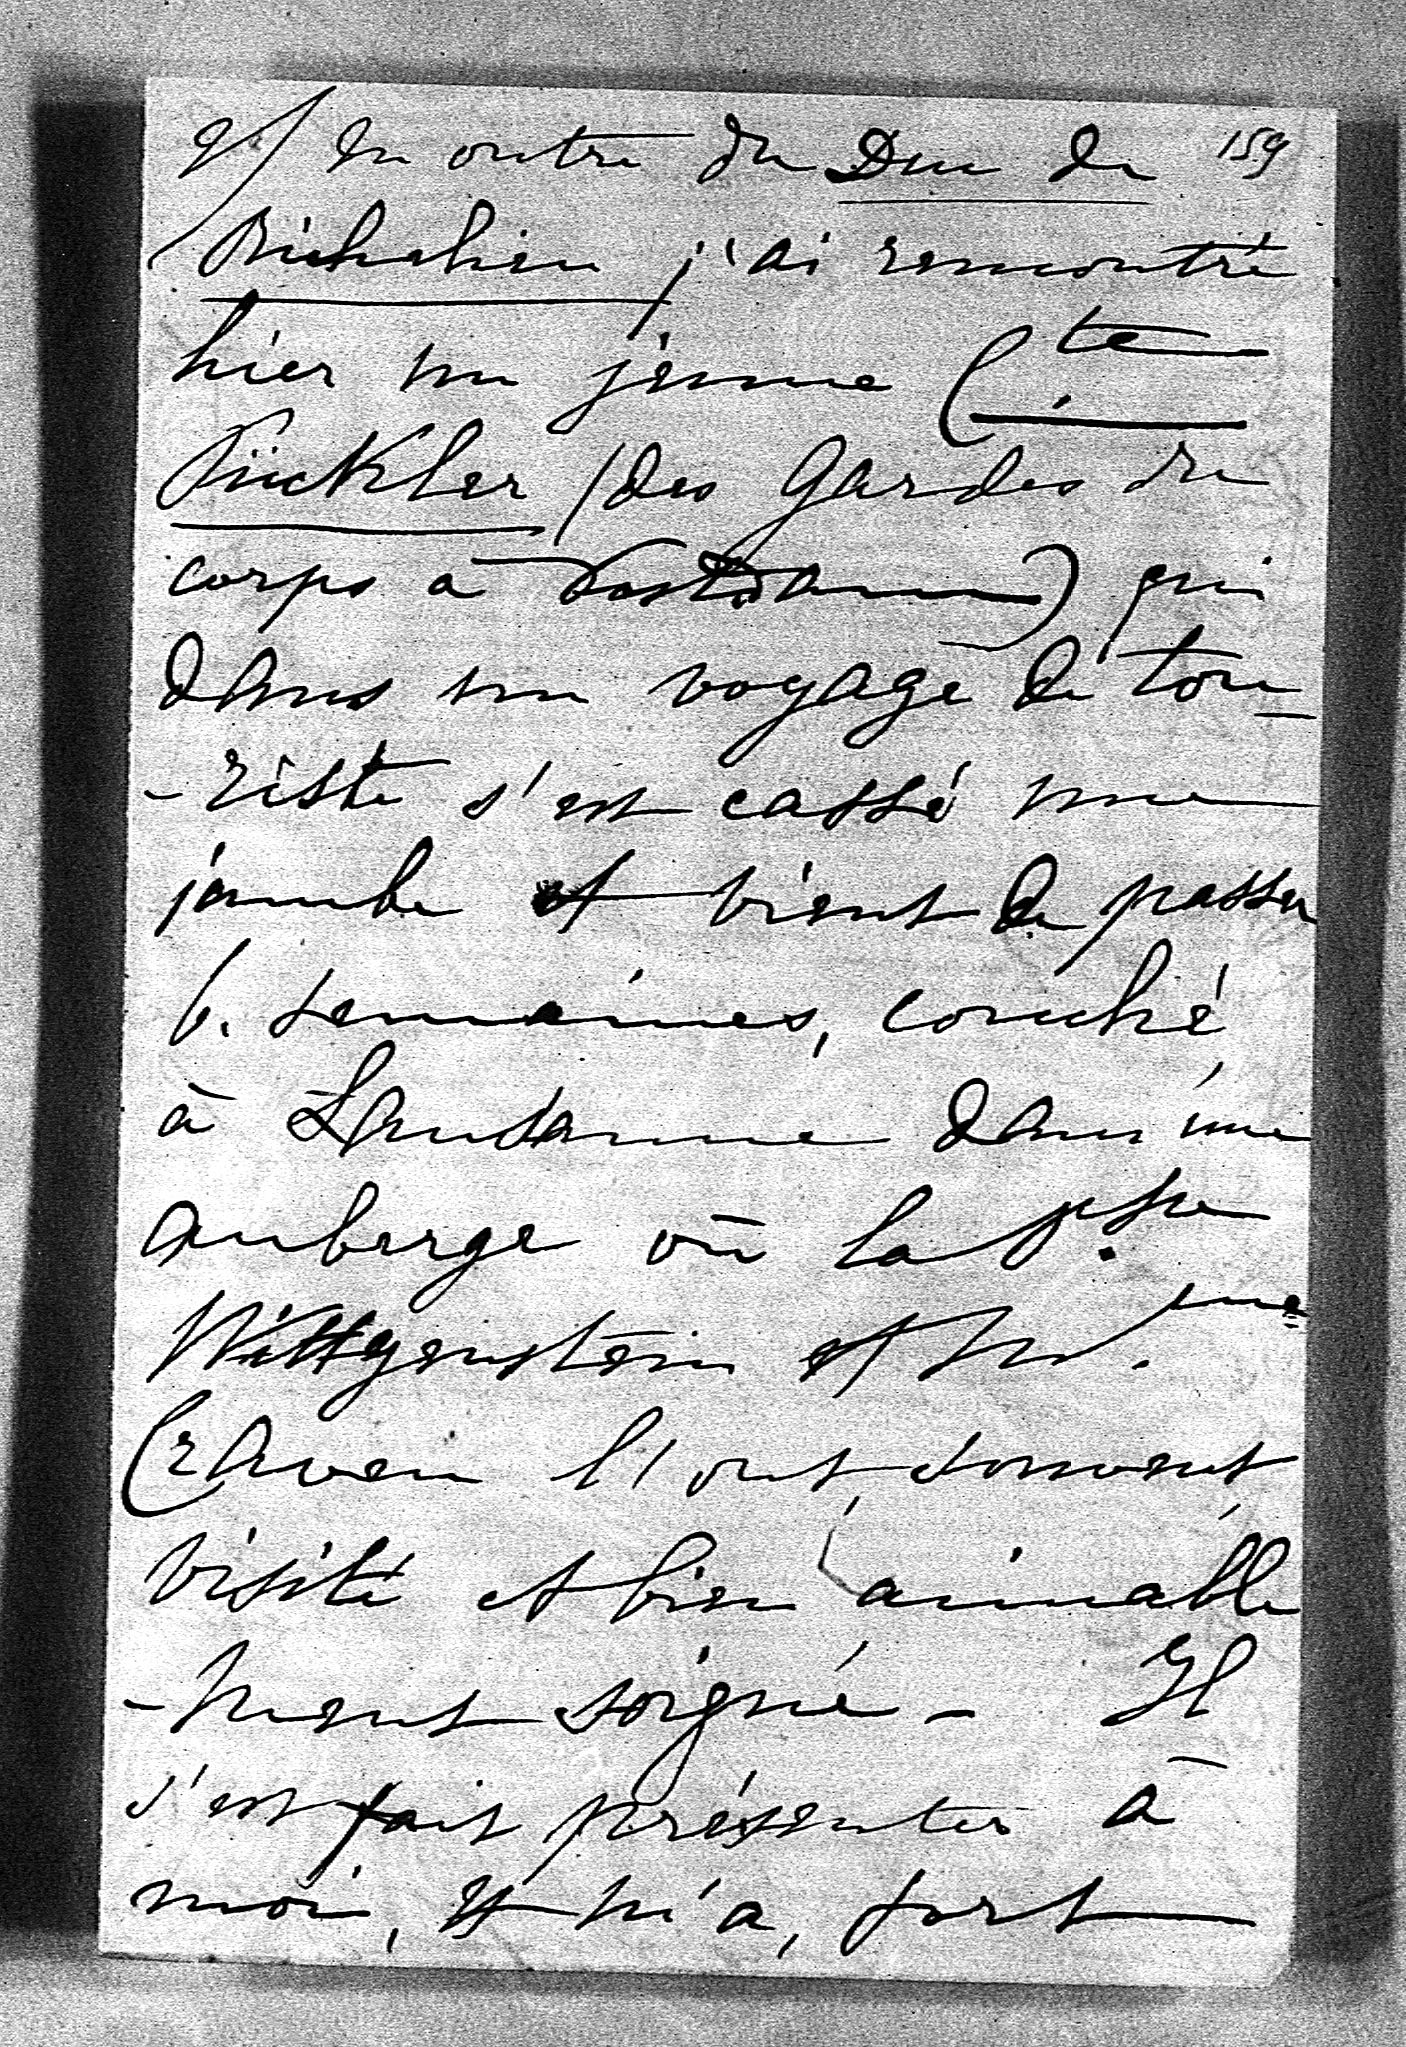 2/ En outre du Duc de 159
Richelieu j'ai rencontré
hier un jeune Cte
Pückler (des Gardes du
corps à Postdamm) qui
dans un voyage de tou-
-riste s'est cassé une
jambe et vient de passer
6. semaines, couché
à Lausanne dans une
auberge où la Psse
Wittgenstein et Mme
Craven l'ont souvent
visité et bien aimable
-ment soigné - Il
s'est fait présenter à
moi, et m'a, fort